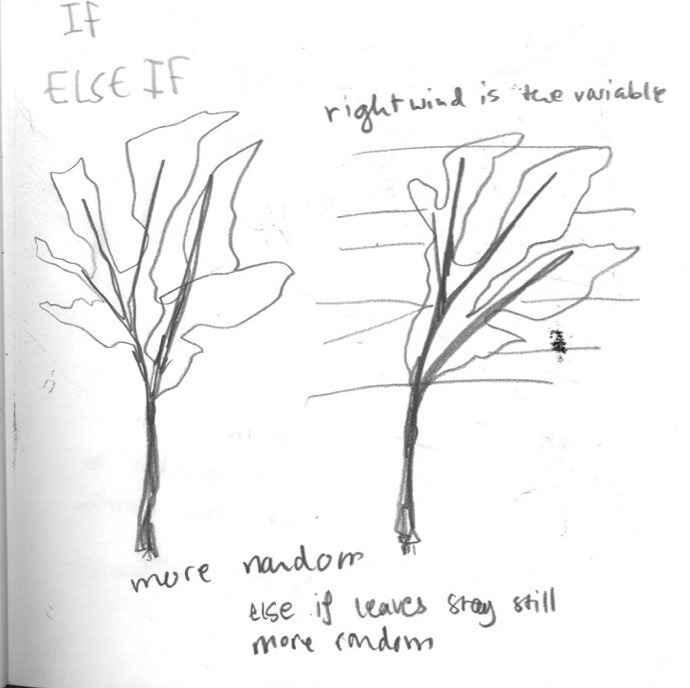 If
ELSE IF
right wind is the variable
more random
else if leaves stay still
more random